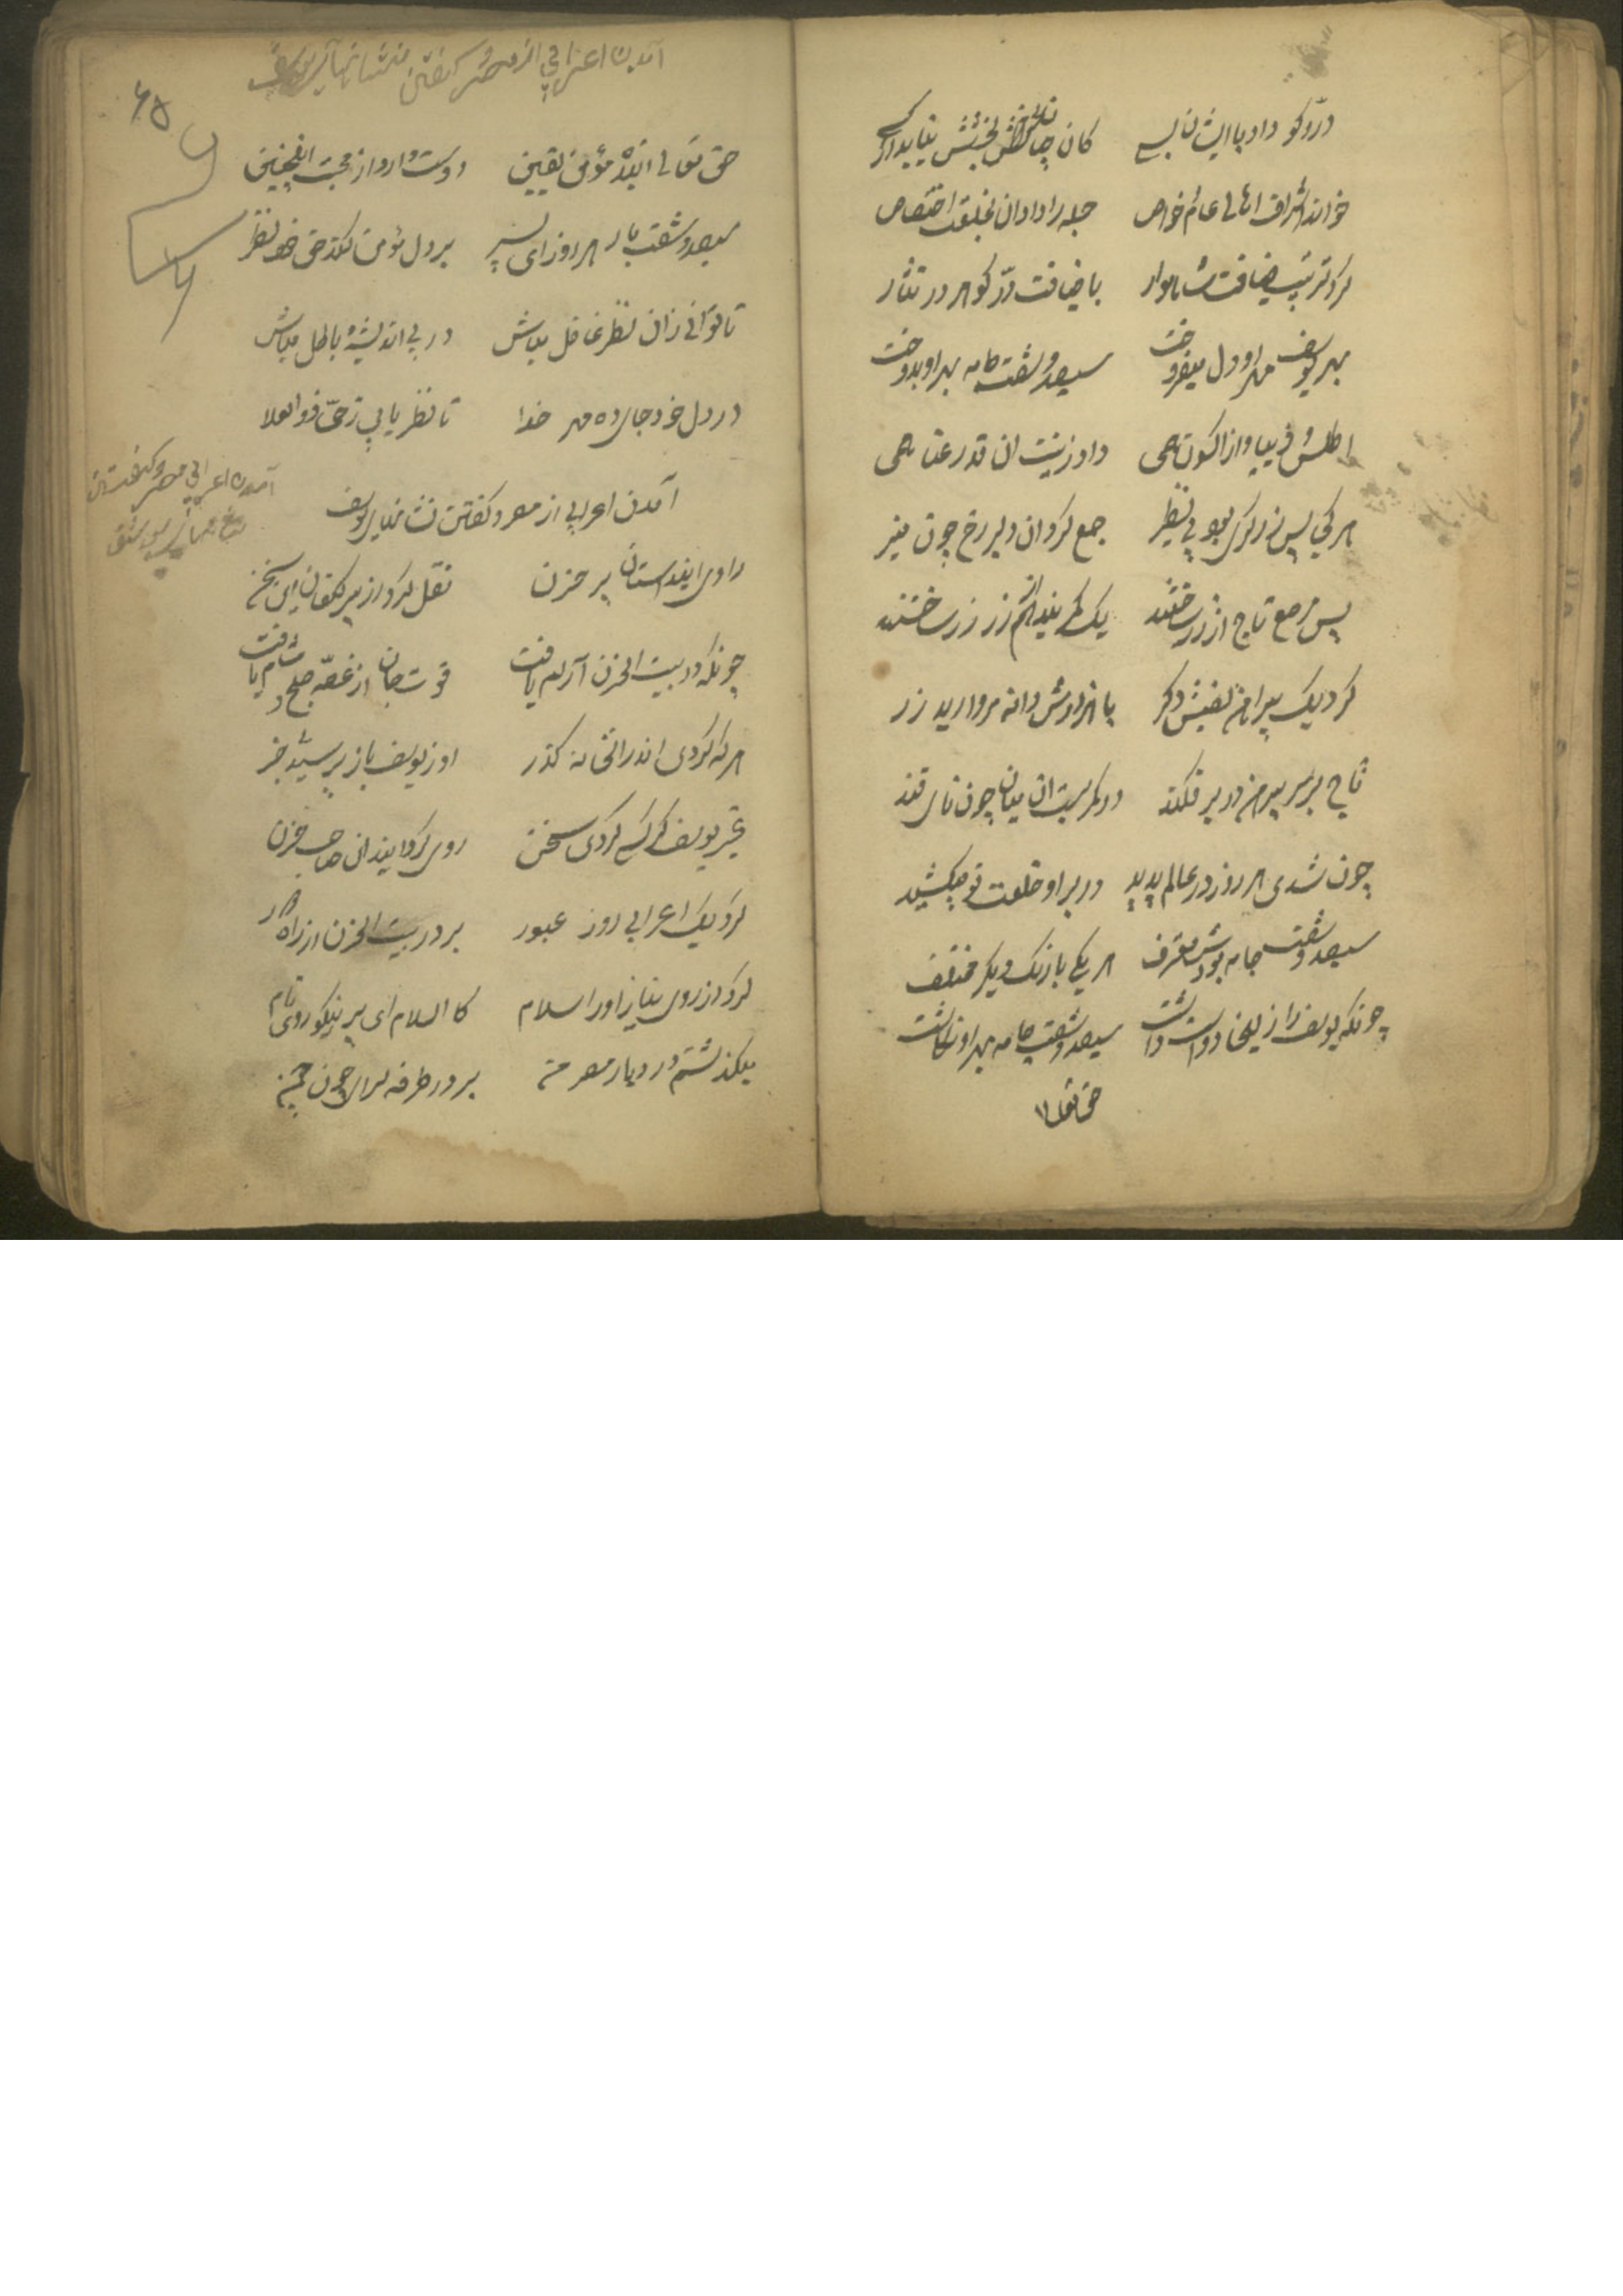 در و گو داد با ایشان بسی کان چنان بخشش نیاید از کسی
خواند اشراف اهالی عام و خاص جمله را داد آن بخلعت اختصاص
کرد ترتیب ضیافت شاهوار با ضیافت در و گوهر در نثار
بهر یوسف مهر او دل میفروخت سیصد و شصت جامه بهر او بدوخت
اطلس و دیبا و از اکسون همی داد زینت آن قد رعنا همی
هر یکی پس زرکش بود بی نظیر جمع کرد آن دلبر رخ چون منیر
پس مرصع تاج از زر ساختند یک کمربند آنهم از زر ساختند
کرد یک پیراهن نفیس دگر با هزارش دانه مروارید زر
تاج بر سر پیرهن در بر فکند در کمر بست آن میان چون نای قند
چون شدی هر روز در عالم پدید در بر او خلعت نو میکشید
سیصد و شصت جامه بودش معترف هر یکی با رنگ دیگر مختلف
چونکه یوسف را زلیخا دوست داشت سیصد و شصت جامه بهر او نگاشت
حق تعالی
آمدن اعرابی از مصر و گفتن نشانهای یوسف
۶۵
حق تعالی بنده مؤمن یقین دوست دارد از محبت اینچنین
سیصد و شصت بار هر روز ای پسر بر دل مؤمن کند حق خود نظر
تا توانی زان نظر غافل مباش در پی اندیشه باطل مباش
در دل خود جای ده مهر خدا تا نظر یابی ز حق ذو العلا
آمدن اعرابی مصر و گفتن
آمدن اعرابی از مصر و گفتن نشانهای یوسف
راوی این داستان پر حزن نقل کرد از پیر کنعان این سخن
چونکه در بیت الحزن آرام یافت قوت جان از غصه صبح و شام یافت
هر که کردی اندر آنخانه گذر او ز یوسف باز پرسیدی خبر
غیر یوسف گر کسی کردی سخن روی گردانید آن صاحب حزن
کرد یک اعرابی روزی عبور بر در بیت الحزن از راه دور
کرد از روی نیاز او را سلام کالسلام ای پیر نیکو روی نام
میگذشتم در دیار مصر من بر در طرفه سرای چون چمن